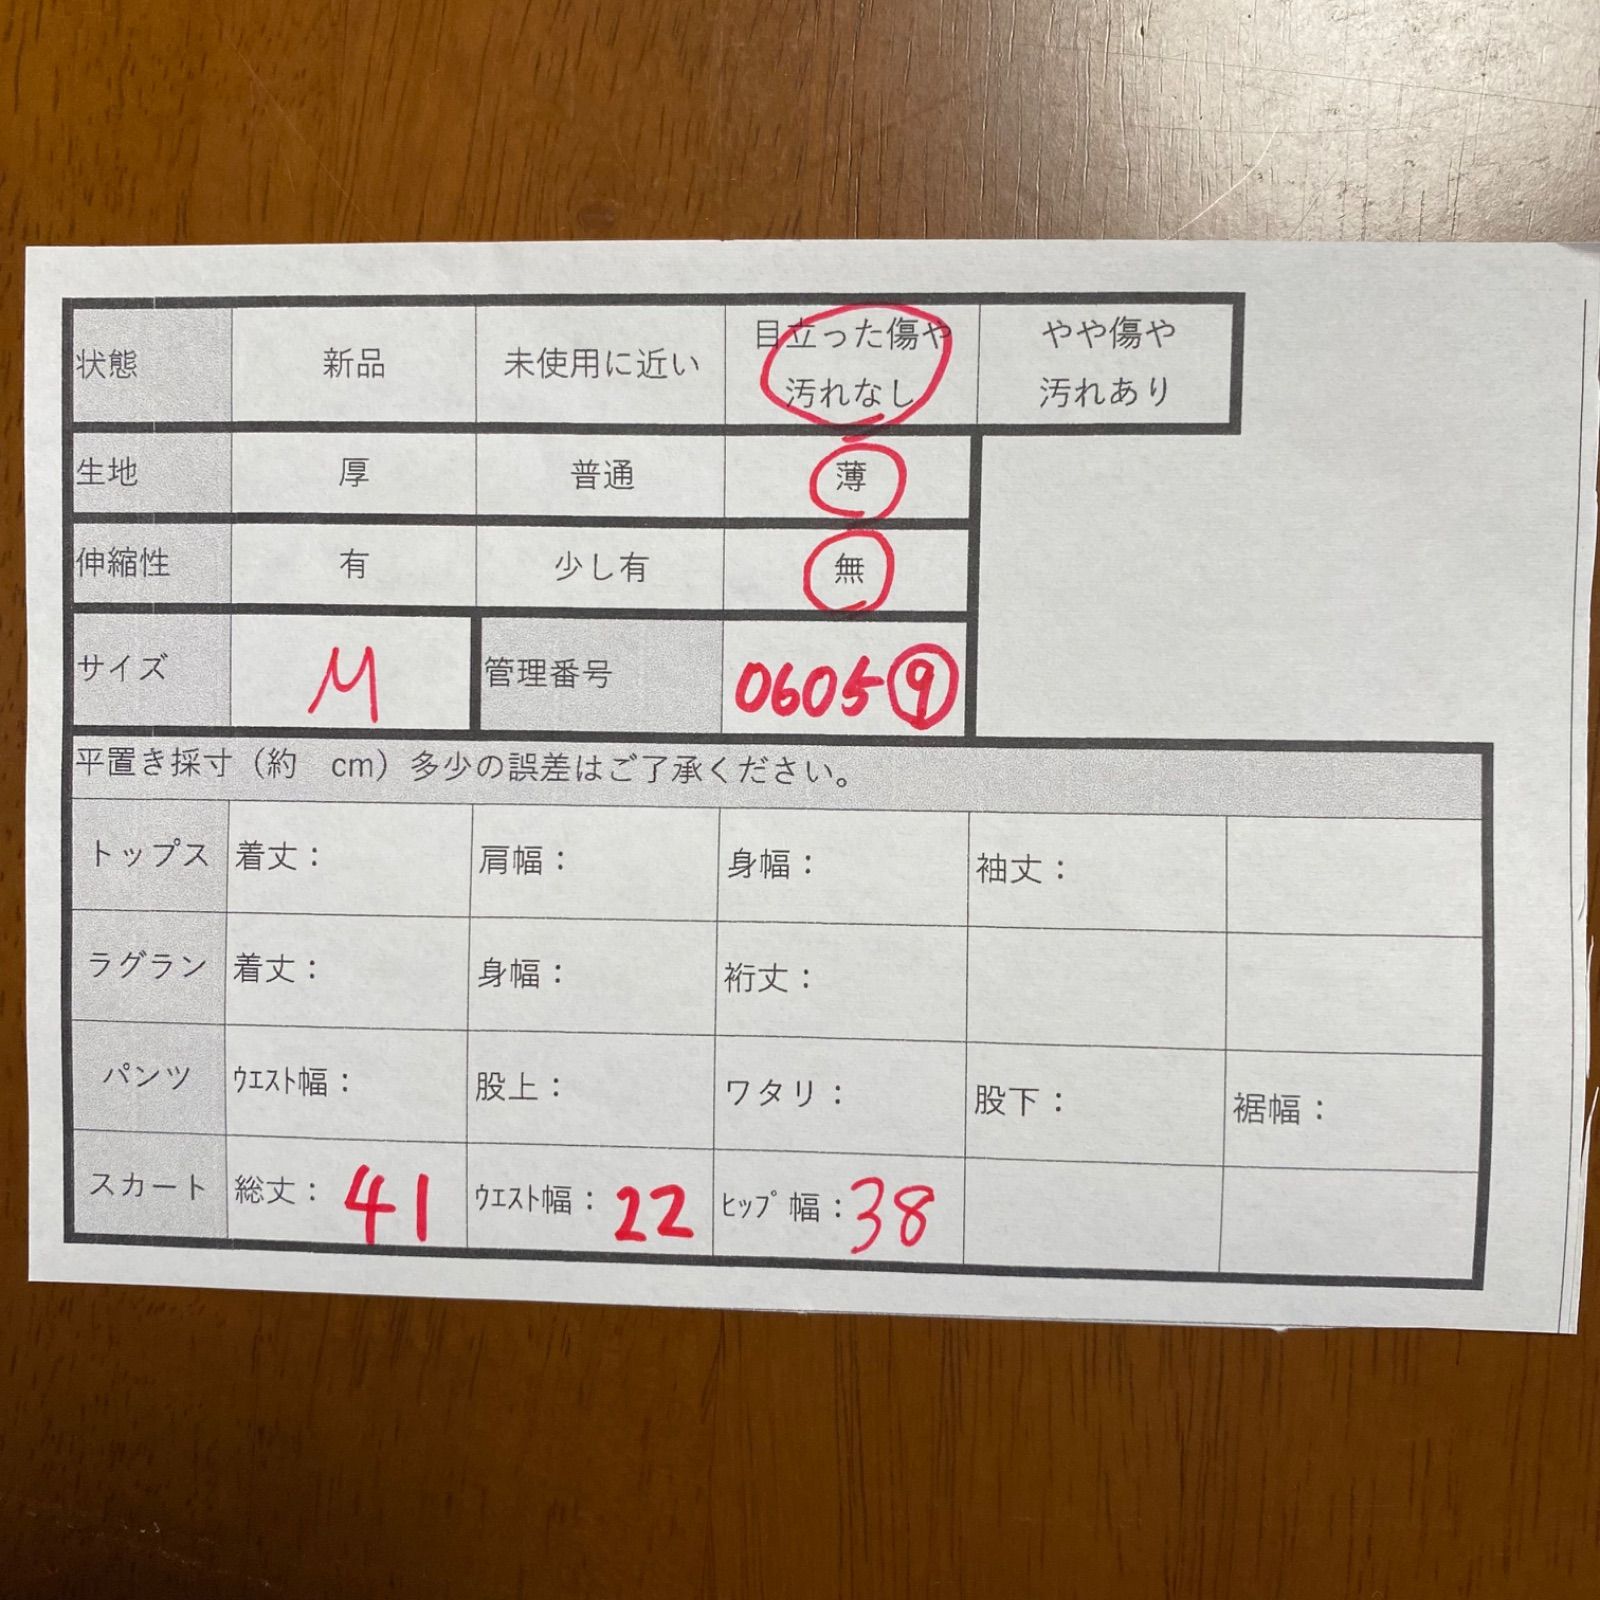 状態 新品 未使用に近い 目立った傷や汚れなし やや傷や汚れあり
生地 厚 普通 薄
伸縮性 有 少し有 無
サイズ M 管理番号 0605⑨
平置き採寸（約　cm）多少の誤差はご了承ください。
トップス 着丈： 肩幅： 身幅： 袖丈：
ラグラン 着丈： 身幅： 裄丈：
パンツ ｳｴｽﾄ幅： 股上： ワタリ： 股下： 裾幅：
スカート 総丈：41 ｳｴｽﾄ幅：22 ﾋｯﾌﾟ幅：38